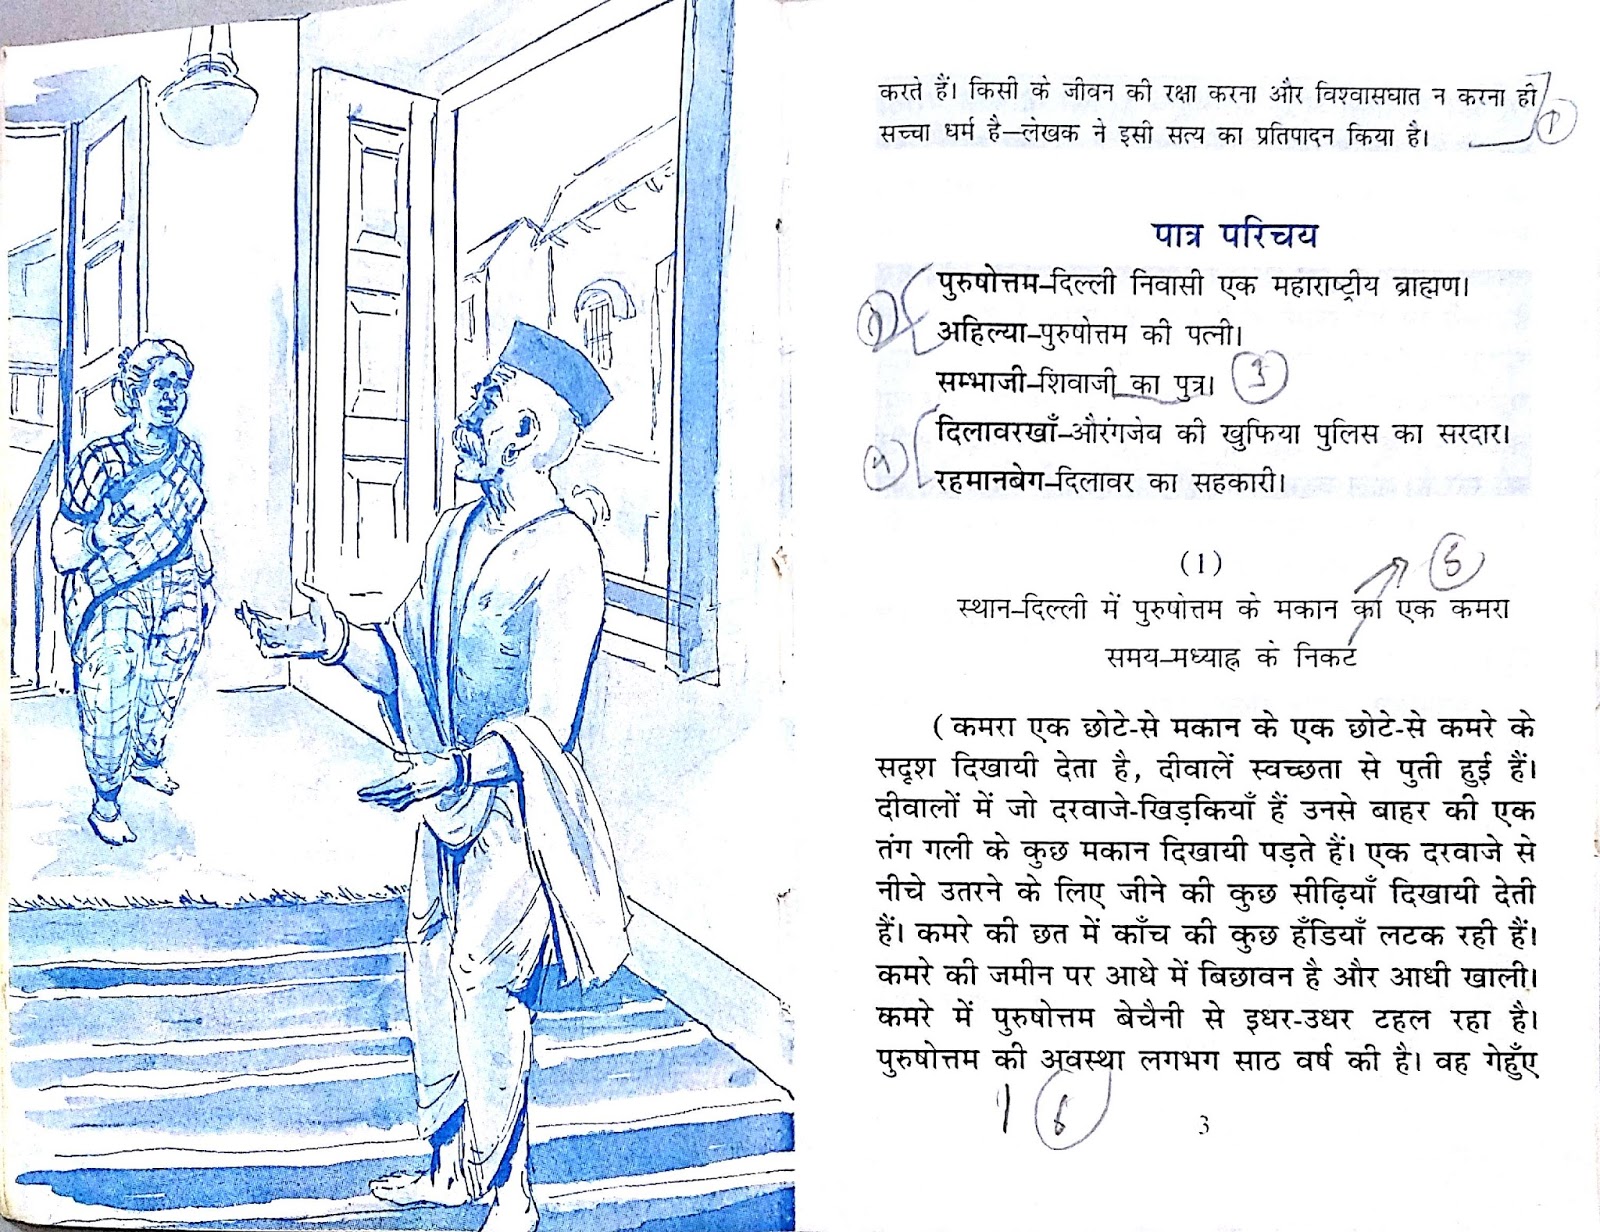 करते हैं। किसी के जीवन की रक्षा करना और विश्वासघात न करना ही
सच्चा धर्म है—लेखक ने इसी सत्य का प्रतिपादन किया है।
1
पात्र परिचय
पुरुषोत्तम–दिल्ली निवासी एक महाराष्ट्रीय ब्राह्मण।
अहिल्या–पुरुषोत्तम की पत्नी।
सम्भाजी–शिवाजी का पुत्र।
3
दिलावरखाँ–औरंगजेब की खुफिया पुलिस का सरदार।
रहमानबेग–दिलावर का सहकारी।
(1)
5
स्थान–दिल्ली में पुरुषोत्तम के मकान का एक कमरा
समय–मध्याह्न के निकट
( कमरा एक छोटे-से मकान के एक छोटे-से कमरे के
सदृश दिखायी देता है, दीवालें स्वच्छता से पुती हुई हैं।
दीवालों में जो दरवाजे-खिड़कियाँ हैं उनसे बाहर की एक
तंग गली के कुछ मकान दिखायी पड़ते हैं। एक दरवाजे से
नीचे उतरने के लिए जीने की कुछ सीढ़ियाँ दिखायी देती
हैं। कमरे की छत में काँच की कुछ हँडियाँ लटक रही हैं।
कमरे की जमीन पर आधे में बिछावन है और आधी खाली।
कमरे में पुरुषोत्तम बेचैनी से इधर-उधर टहल रहा है।
पुरुषोत्तम की अवस्था लगभग साठ वर्ष की है। वह गेहुँए
6
3